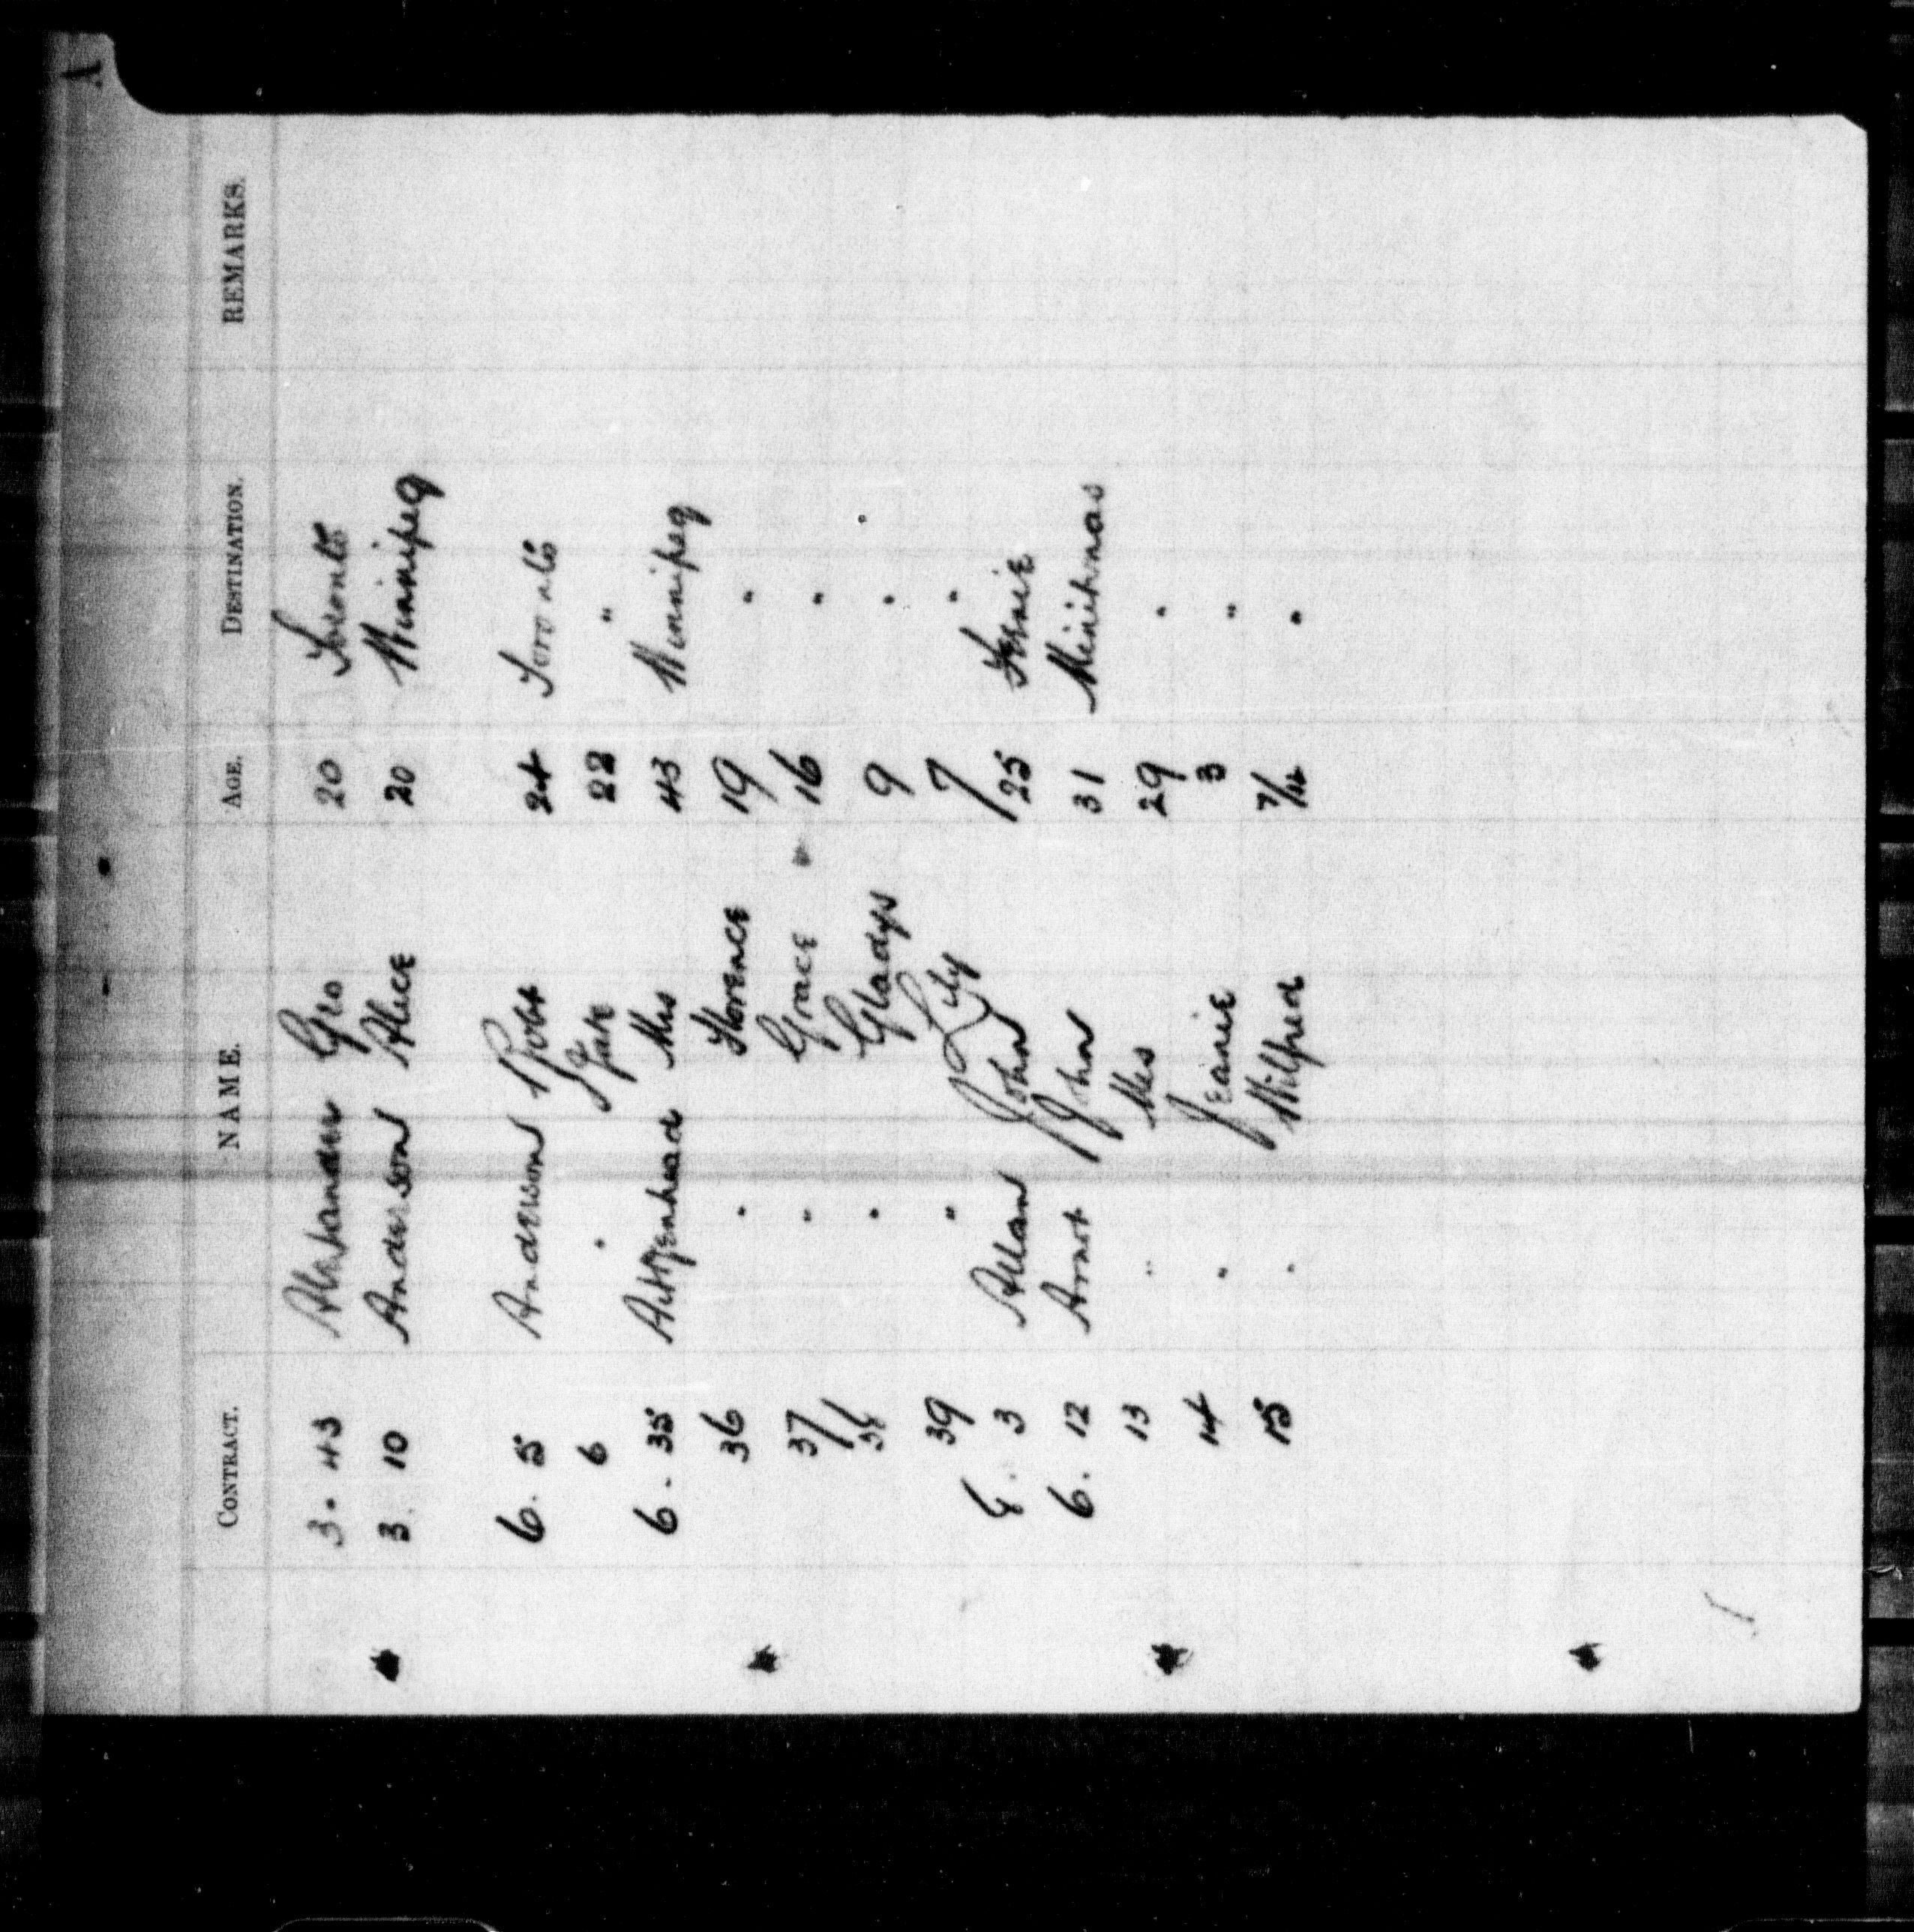 A
CONTRACT. NAME. AGE. DESTINATION. REMARKS.
3. 43 Alexander Geo 20 Toronto
3. 10 Anderson Alice 20 Winnipeg
6. 5 Anderson Robt 24 Toronto
6 " 22 "
6. 35 Mrs 43 Winnipeg
36 " Florence 19 "
37 " Grace 16 "
38 " Gladys 9 "
39 " Lily 7 "
6. 3 Allan John 25 Fernie
6. 12 Arnot John 31 Minitonas
13 " Mrs 29 "
14 " Jeanie 3 "
15 " Wilfred 7/12 "